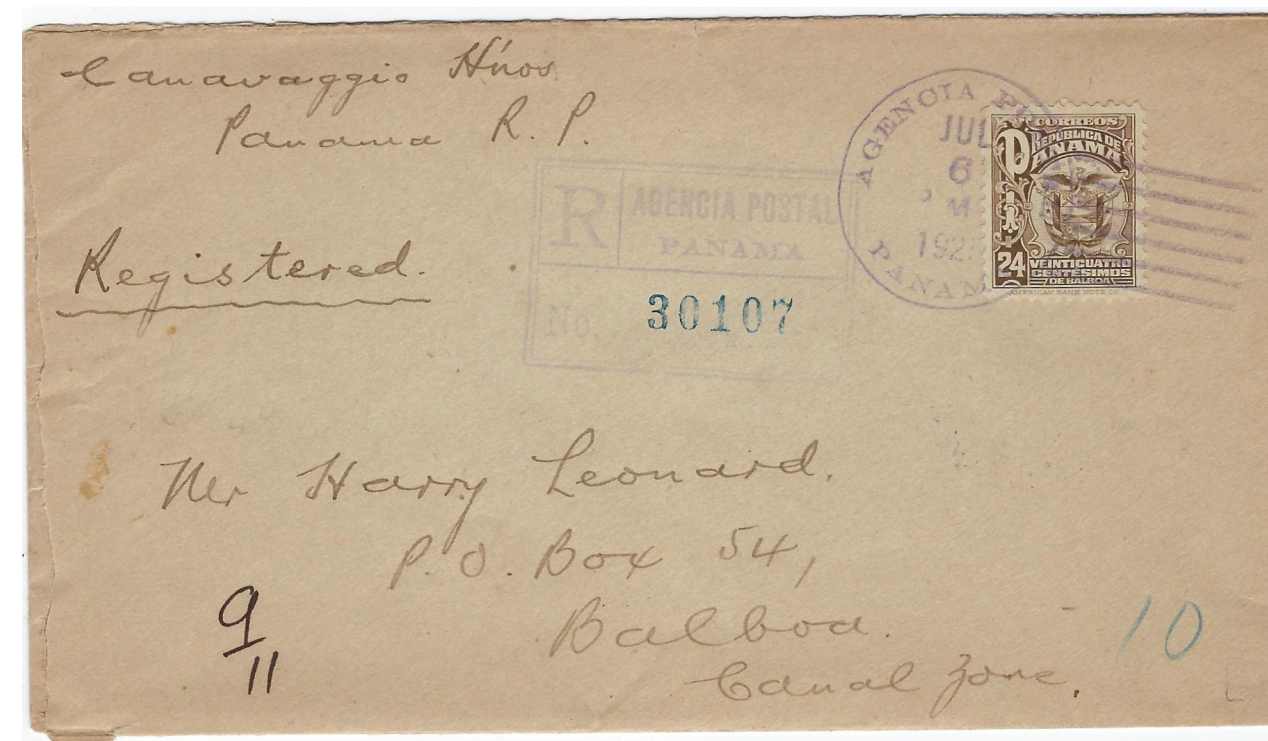 Canavaggio H'nos
Panama R. P.
Registered.
R AGENCIA POSTAL
PANAMA
No. 30107
AGENCIA
JUL
6
M
PANAMA
CORREOS
REPÚBLICA DE
PANAMA
24 VEINTICUATRO
CENTESIMOS
DE BALBOA
AMERICAN BANK NOTE CO.
Mr Harry Leonard.
P.O. Box 54,
Balboa.
Canal Zone.
9
11
10